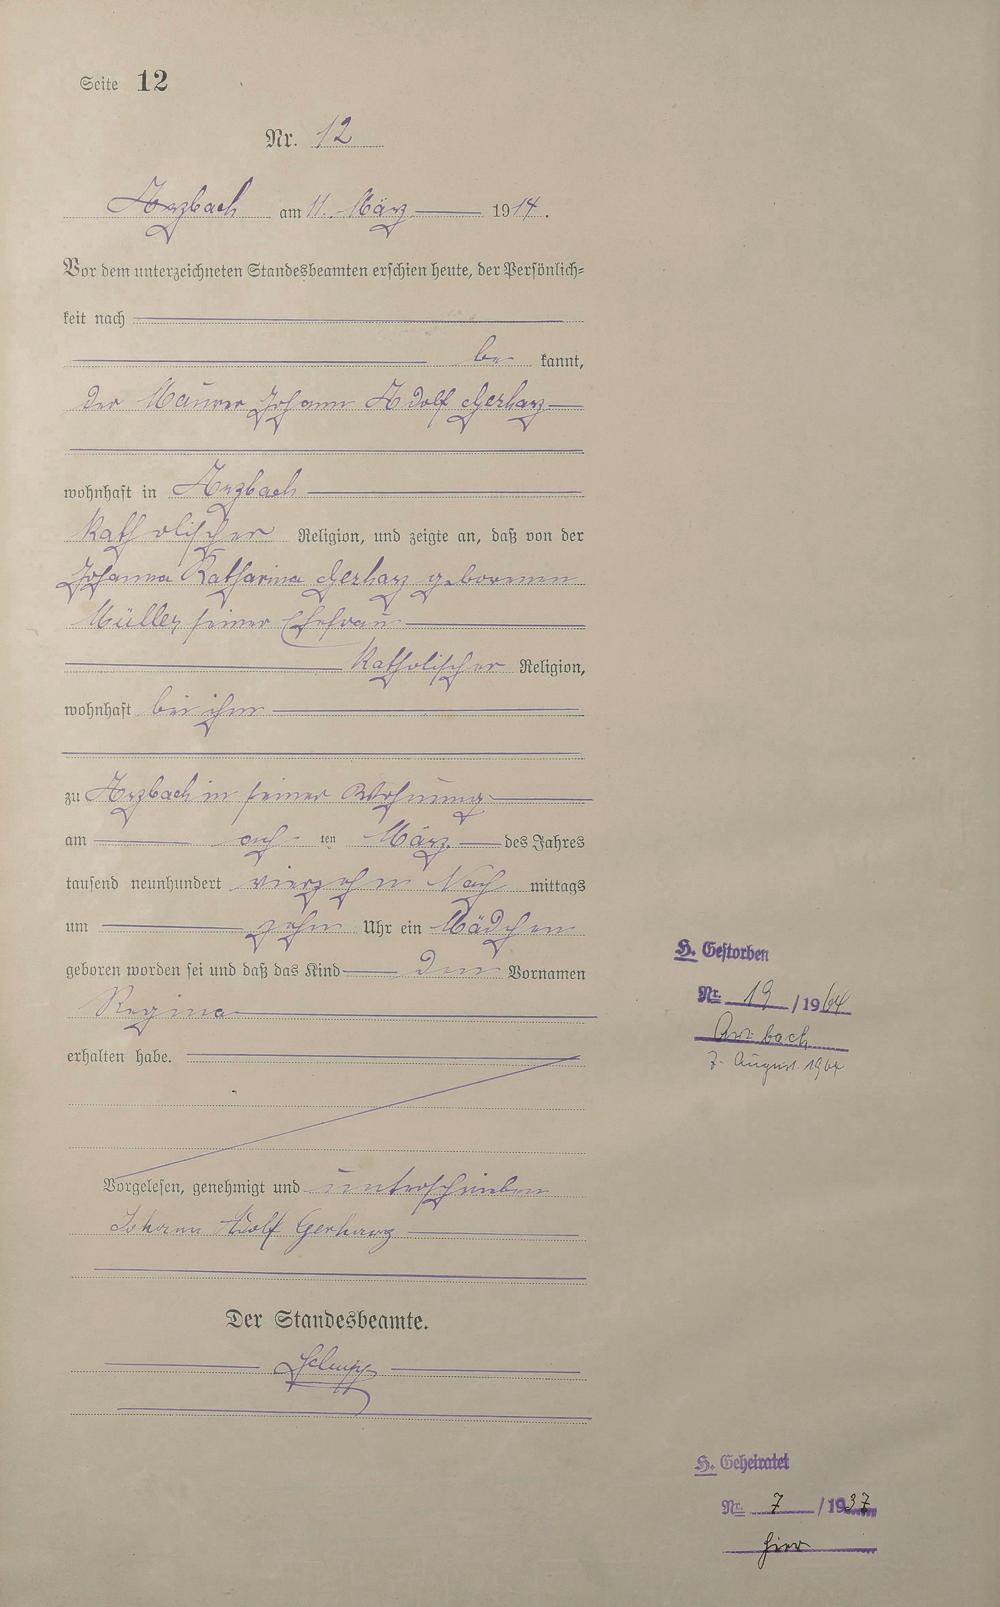 Seite 12
Nr. 12
Arzbach am 11. März 1914.
Vor dem unterzeichneten Standesbeamten erschien heute, der Persönlich=
keit nach
be kannt,
der Maurer Johann Adolf Gerharz
wohnhaft in Arzbach
katholischer Religion, und zeigte an, daß von der
Johanna Katharina Gerharz geborenen
Müller seiner Ehefrau
katholischer Religion,
wohnhaft bei ihm
zu Arzbach in seiner Wohnung
am ach ten März des Jahres
tausend neunhundert vierzehn Nach mittags
um zehn Uhr ein Mädchen
geboren worden sei und daß das Kind den Vornamen
Regina
erhalten habe.
Vorgelesen, genehmigt und unterschrieben
Johann Adolf Gerharz
Der Standesbeamte.
H. Gestorben
Nr. 19 / 1964
Arzbach
7. August 1964
H. Geheiratet
Nr. 7 / 1937
hier